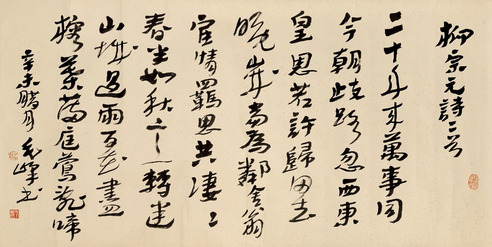 柳宗元詩二首
二十年來萬事同
今朝歧路忽西東
皇恩若許歸田去
晚歲當為鄰舍翁
宦情羈思共凄〻
春半如秋意轉迷
山城過雨百花盡
榕葉滿庭鶯亂啼
辛未腊月 峰书